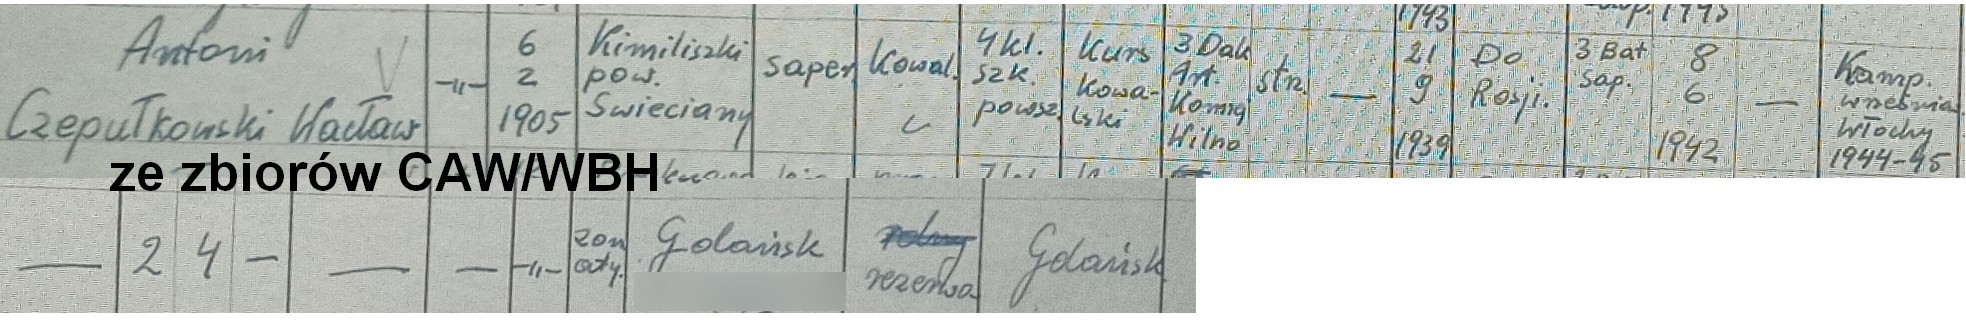 1943
1945
Antoni
Czepułkowski Wacław
V
-"-
6
2
1905
Kimiliszki
pow.
Swieciany
saper
Kowal.
4 kl.
szk.
powsz.
Kurs
Kowa-
lski
3 Dak
Art.
Konną
Wilno
strz.
—
21
9
1939
Do
Rosji.
3 Bat
Sap.
8
6
1942
—
Kamp.
września
Włochy
1944-45
ze zbiorów CAW/WBH
—
2
4
-
—
—
-"-
żon
aty.
Gdańsk
rolny
rezerwa
Gdańsk